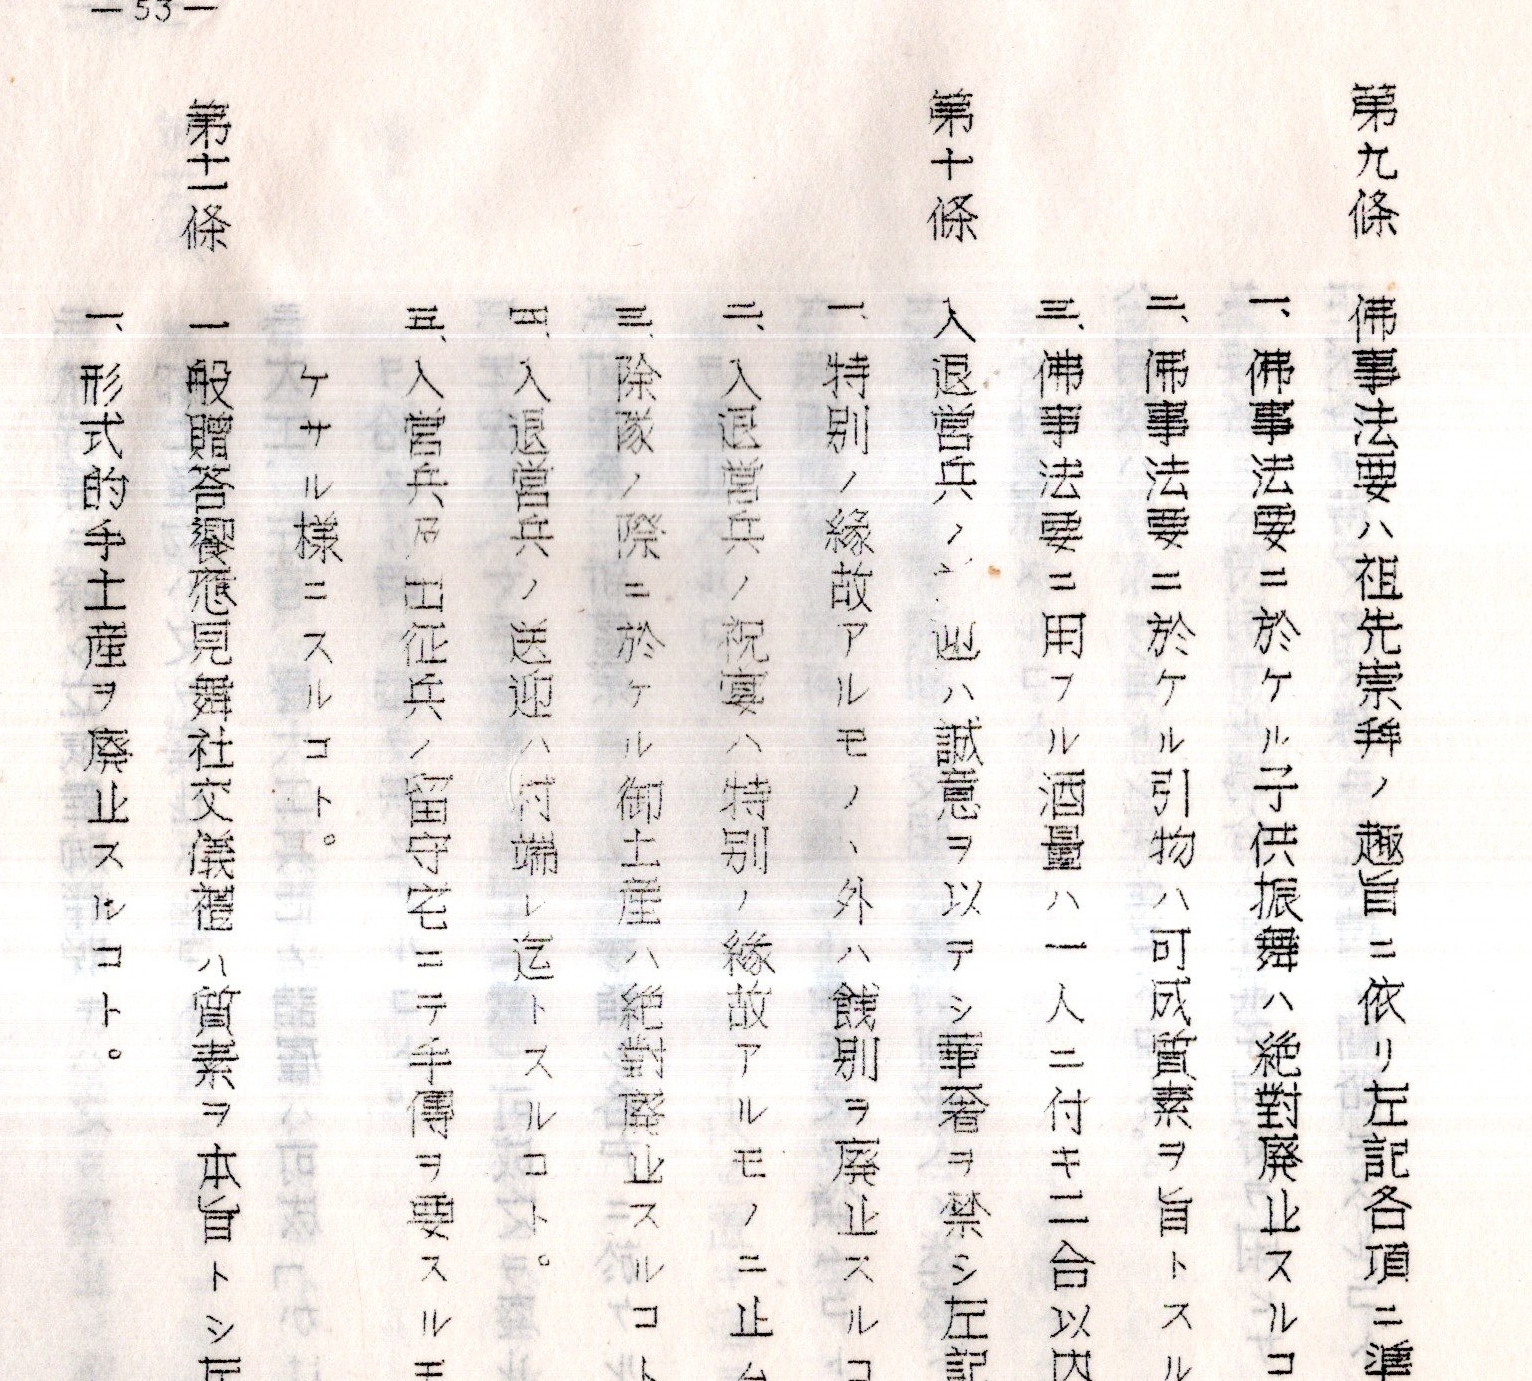 第九條　佛事法要ハ祖先崇拜ノ趣旨ニ依リ左記各項ニ準
一、佛事法要ニ於ケル子供振舞ハ絶對廃止スルコ
二、佛事法要ニ於ケル引物ハ可成質素ヲ旨トスル
三、佛事法要ニ用フル酒量ハ一人ニ付キ二合以内
第十條　入退営兵ノ迎ハ誠意ヲ以テシ華奢ヲ禁シ左記
一、特別ノ縁故アルモノヽ外ハ餞別ヲ廃止スルコ
二、入退営兵ノ祝宴ハ特別ノ縁故アルモノニ止ム
三、除隊ノ際ニ於ケル御土産ハ絶對廃止スルコト
四、入退営兵ノ送迎ハ村端レ迄トスルコト。
五、入営兵及出征兵ノ留守宅ニテ手傳ヲ要スルモ
ケサル様ニスルコト。
第十一條　一般贈答饗應見舞社交儀禮ハ質素ヲ本旨トシ左
一、形式的手土産ヲ廃止スルコト。
—53—